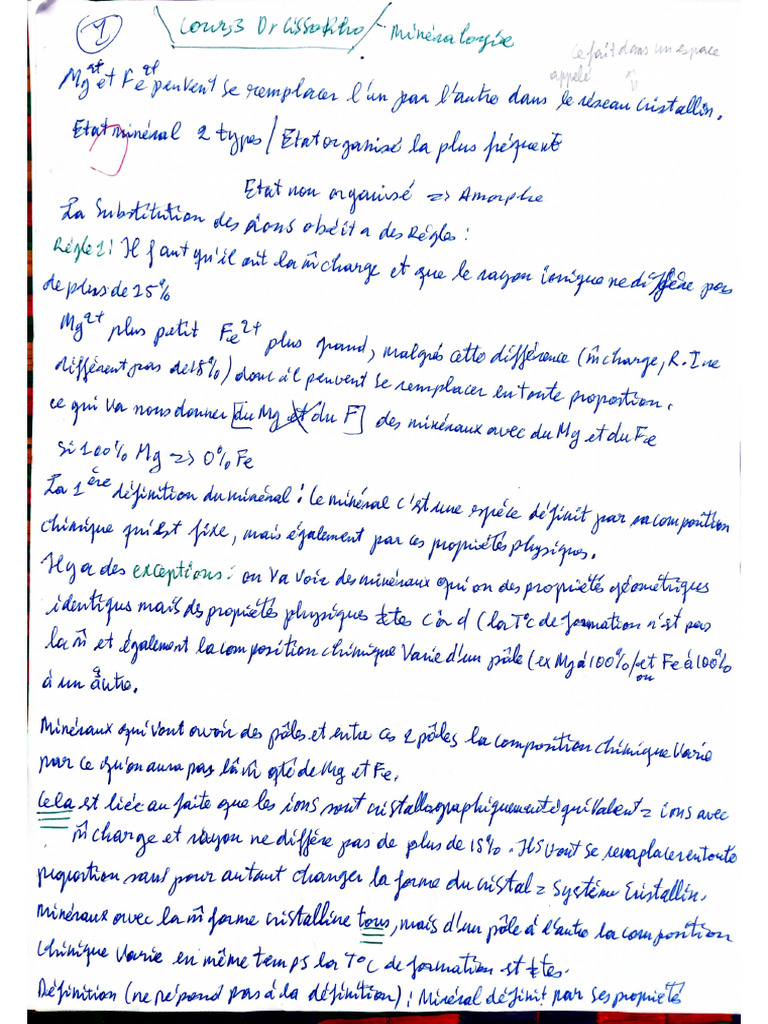 1
Cours Dr Cissokho - Minéralogie
ce fait dans un espace
appelé
Mg2+ et Fe2+ peuvent se remplacer l'un par l'autre dans le réseau cristallin.
Etat minéral 2 types / Etat organisé la plus fréquent
Etat non organisé => Amorphe
La Substitution des ions obéit a des Règles :
Règle 1 : Il faut qu'il ait la m̂ charge et que le rayon ionique ne diffère pas
de plus de 15%
Mg2+ plus petit Fe2+ plus grand, malgrés cette différence (m̂ charge, R.I ne
différent pas de 15%) donc il peuvent se remplacer en toute proportion.
ce qui va nous donner [du Mg et du F] des minéraux avec du Mg et du Fe
si 100% Mg => 0% Fe
La 1ère définition du minéral : Le minéral c'est une espèce définit par sa composition
chimique qui est fixe, mais également par ces propriétés physiques.
Il y a des exceptions : on va voir des minéraux qui on des propriétés géométriques
identiqus mais des propriétés physiques ≠tes c'à d (la T°C de formation n'est pas
la m̂ et également la composition chimique varie d'un pôle (ex Mg à 100%/et ou Fe à 100%
à un autre.
Minéraux qui vont avoir des pôles et entre ces 2 pôles la composition chimique varie
par ce qu'on aura pas la m̂ qté de Mg et Fe.
Cela est liée au faite que les ions sont cristallographiquement équivalent = ions avec
m̂ charge et rayon ne diffère pas de plus de 15%. Ils vont se remplacer en toute
proportion sans pour autant changer la forme du cristal = Système Cristallin.
Minéraux avec la m̂ forme cristalline tous, mais d'un pôle à l'autre la composition
chimique varie en même temps la T°C de formation est ≠tes.
Définition (ne répond pas à la définition) : Minéral définit par ses propriétés